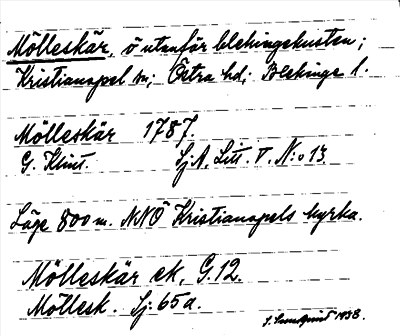 Mölleskär, ö utanför blekingekusten;
Kristianopel sn; Östra hd; Blekinge l.
Mölleskär 1787.
G. Klint. Sj.A. Litt. V. N:o 13.
Läge 800 m. NNÖ Kristianopels kyrka.
Mölleskär ek. G.12.
Möllesk. Sj: 65a.
1938.